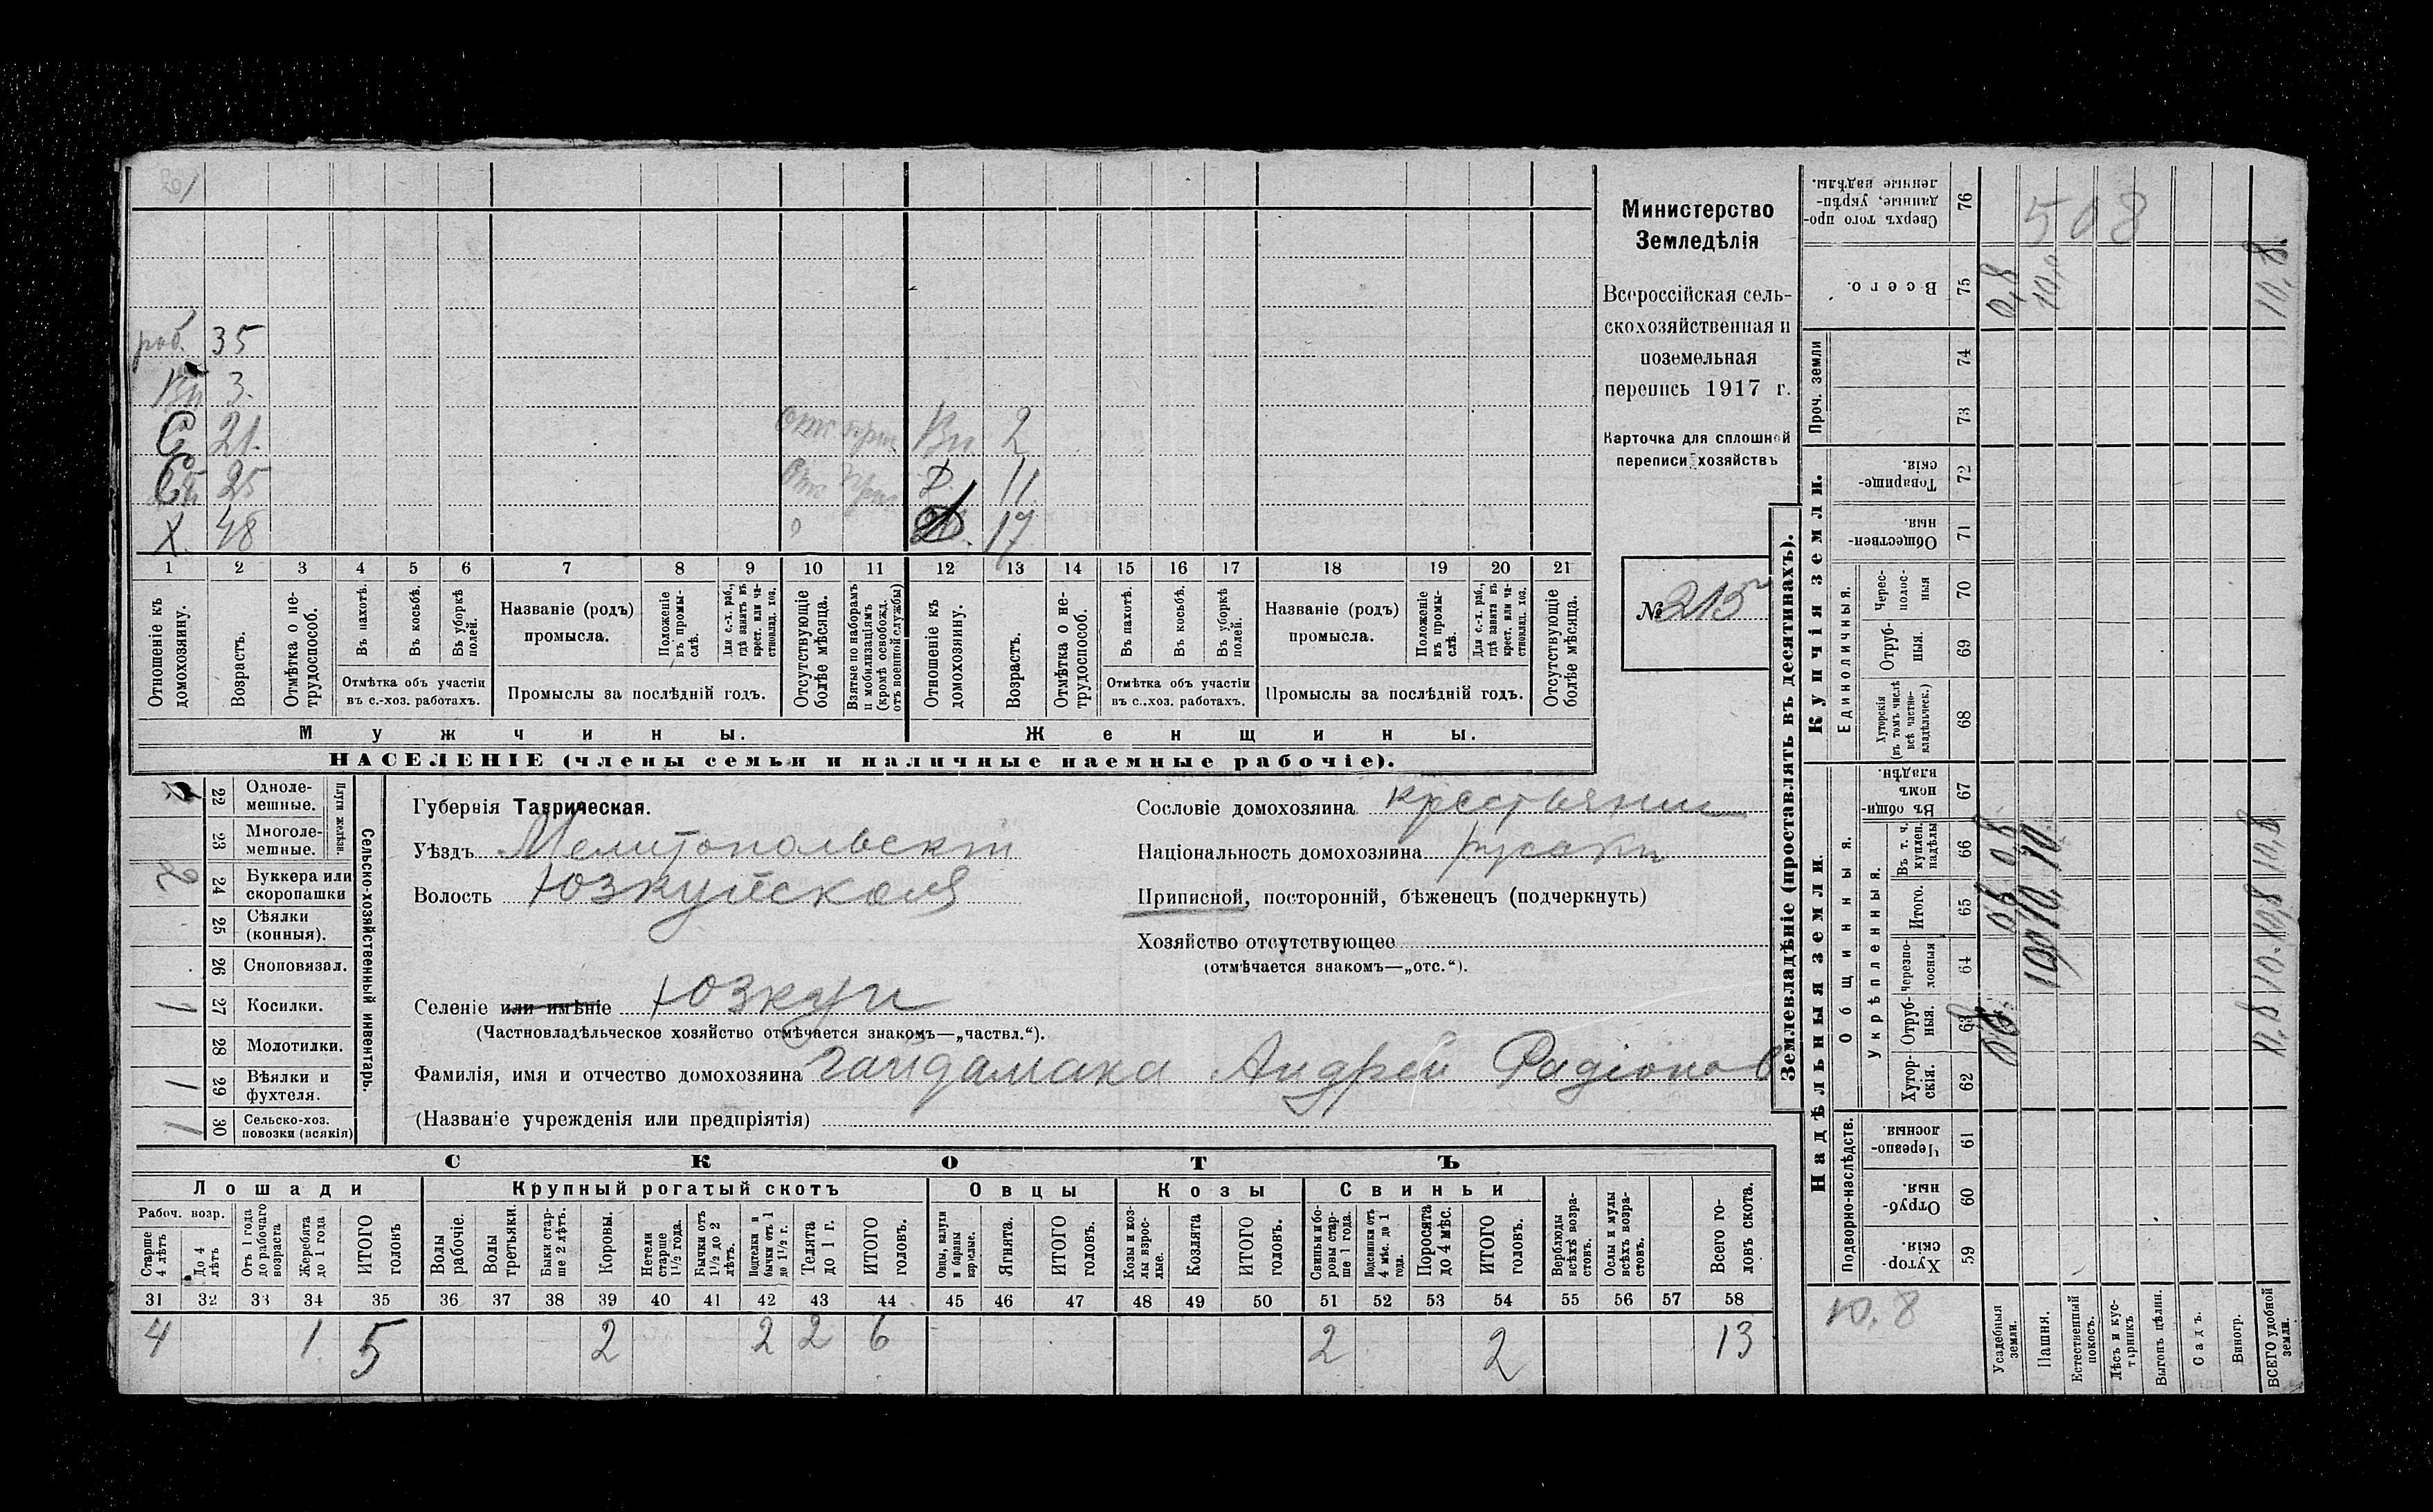 раб. 35
Вн 3.
С 21. Вн. 2
25 Д. 11.
X. 48 17
1 2 3 4 5 6 7 8 9 10 11 12 13 14 15 16 17 18 19 20 21
Отношеніе къ домохозяину.
Возрастъ.
Отмѣтка о нетрудоспособ.
Въ пахотѣ.
Въ косьбѣ.
Въ уборкѣ полей.
Отмѣтка объ участіи
въ с.-хоз. работахъ.
Названіе (родъ)
промысла.
Положеніе въ промыслѣ.
Для с.-х. раб., гдѣ занятъ въ крест. или частновлад. хоз.
Промыслы за послѣдній годъ.
Отсутствующіе болѣе мѣсяца.
Взятые по наборамъ и мобилизаціямъ (кромѣ освобожд. отъ военной службы)
Отношеніе къ домохозяину.
Возрастъ.
Отмѣтка о нетрудоспособ.
Въ пахотѣ.
Въ косьбѣ.
Въ уборкѣ полей.
Отмѣтка объ участіи
въ с..хоз. работахъ.
Названіе (родъ)
промысла.
Положеніе въ промыслѣ.
Для с.-х. раб., гдѣ занята въ крест. или частновлад. хоз.
Промыслы за послѣдній годъ.
Отсутствующіе болѣе мѣсяца.
Мужчины. Женщины.
НАСЕЛЕНІЕ (члены семьи и наличные наемные рабочіе).
Министерство
Земледѣлія
Всероссійская сель-
скохозяйственная и
поземельная
перепись 1917 г.
Карточка для сплошной
переписи хозяйствъ
№ 215
Сельско-хозяйственный инвентарь.
Плуги желѣзн.
22 Одноле-
мешные.
23 Многоле-
мешные.
2 24 Буккера или
скоропашки
25 Сѣялки
(конныя).
26 Сноповязал.
1 27 Косилки.
28 Молотилки.
1 29 Вѣялки и
фухтеля.
1 30 Сельско-хоз.
повозки (всякія)
Губернія Таврическая.
Уѣздъ Мелитопольскій
Волость Юзкуйская
Селеніе или имѣніе Юзкуи
(Частновладѣльческое хозяйство отмѣчается знакомъ—„частвл.“).
Фамилія, имя и отчество домохозяина Гайдамака Андрей Радіонов
(Названіе учрежденія или предпріятія)
Сословіе домохозяина крестьянин
Національность домохозяина русаки
Приписной, посторонній, бѣженецъ (подчеркнуть)
Хозяйство отсутствующее
(отмѣчается знакомъ—„отс.“).
СКОТЪ
Лошади Крупный рогатый скотъ Овцы Козы Свиньи
Рабоч. возр.
Старше 4 лѣтъ
До 4 лѣтъ
Отъ 1 года до рабочаго возраста
Жеребята до 1 года
ИТОГО головъ
Волы рабочіе.
Волы третьяки.
Быки старше 2 лѣтъ.
Коровы.
Нетели старше 1½ года.
Бычки отъ 1½ до 2 лѣтъ.
Подтелки и бычки отъ 1 до 1½ г.
Телята до 1 г.
ИТОГО головъ.
Овцы, валухи и бараны взрослые.
Ягнята.
ИТОГО головъ.
Козы и козлы взрослые.
Козлята
ИТОГО головъ.
Свиньи и боровы старше 1 года.
Подсвинки отъ 4 мѣс. до 1 года.
Поросята до 4 мѣс.
ИТОГО головъ.
Верблюды всѣхъ возрастовъ.
Ослы и мулы всѣхъ возрастовъ.
Всего головъ скота.
31 32 33 34 35 36 37 38 39 40 41 42 43 44 45 46 47 48 49 50 51 52 53 54 55 56 57 58
4 1. 5 2 2 2 6 2 2 13
Землевладѣніе (проставлять въ десятинахъ).
Надѣльныя земли. Купчія земли.
Проч. земли
Подворно-наслѣдств.
Общинныя.
Укрѣпленныя.
Единоличныя.
Хуторскія. 59
Отрубныя. 60
Черезполосныя. 61
Хуторскія. 62
Отрубныя. 63
Черезполосныя 64
Итого. 65
Въ т. ч. куплен. надѣлы 66
Въ общинномъ владѣн. 67
Хуторскія (въ томъ числѣ всѣ частновладѣльческ.) 68
Отрубныя. 69
Черезполосныя 70
Общественныя. 71
Товарищескія. 72
73
74
Всего. 75
Сверхъ того проданные, укрѣпленные надѣлы. 76
508
10,8
Усадебныя земли.
Пашня.
Естественный покосъ.
Лѣсъ и кустарникъ
Выгонъ цѣлин.
Садъ.
Виногр.
ВСЕГО удобной земли.
0,8
10,8.